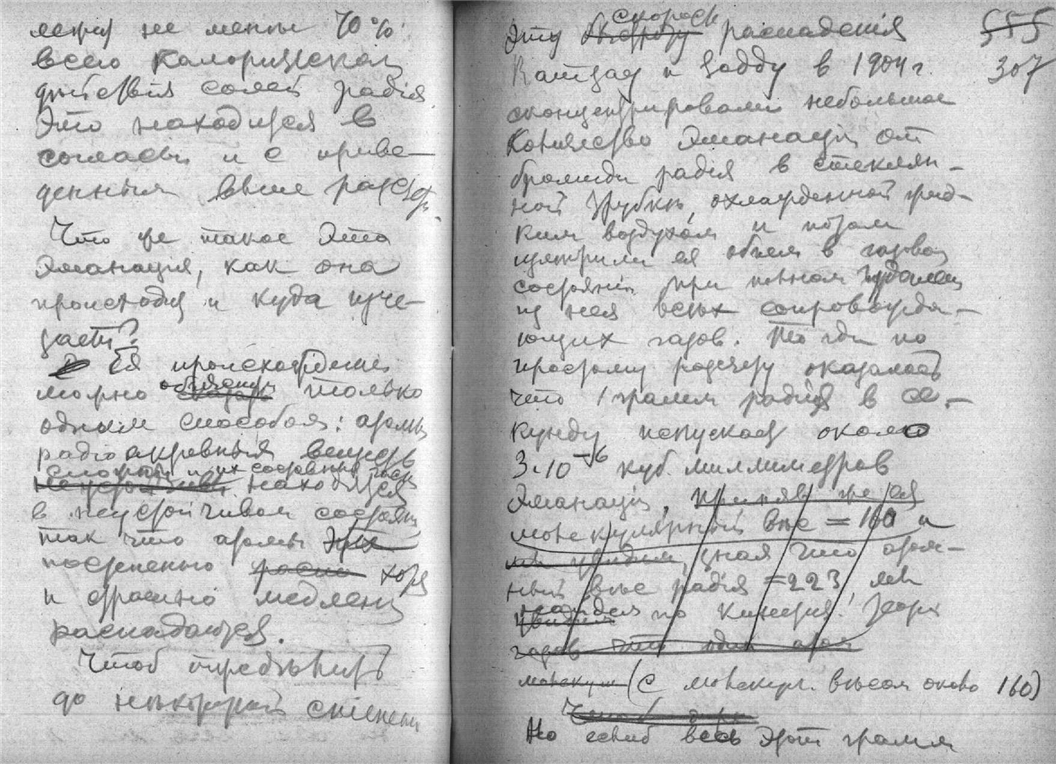 не менее 70%
всего калорическая
действія солей радія.
Это находится в
согласьи и с приве-
денным выше
Что же такое эта
Эманація, как она
происходит и куда изче-
зает?
Ея происхожденіе
можно объяснить только
одним способом: атомы
радіоактивных веществ
находятся
в неустойчивом состояніи
так что атомы эти
постепенно хотя
и страшно медленно
распадаются.
Чтоб определить
до некоторой степени
эту быстроту скорость распаденія
555
Рамзай и Содди в 1904 г.
307
сконцентрировали небольшое
количество Эманаціи от
бромида радія в стеклян-
ной трубке, охлажденной жид-
ким воздухом и потом
измерили ея объем в газовом
состояніи при полном удаленіи
из нея всех сопровожда-
ющих газов. Тогда по
простому разсчету оказалось
что 1 грамм радія в се-
кунду испускает около
3.10⁻⁶ куб. миллиметров
Эманаціи, приняв же ея
молекулярный вес = 160 и
зная что атом-
ный вес радія = 223 мы
найдем по кинетич. теоріи
газов что один атом
молекул (с молекул. весом около 160)
Но если б весь этот грамм